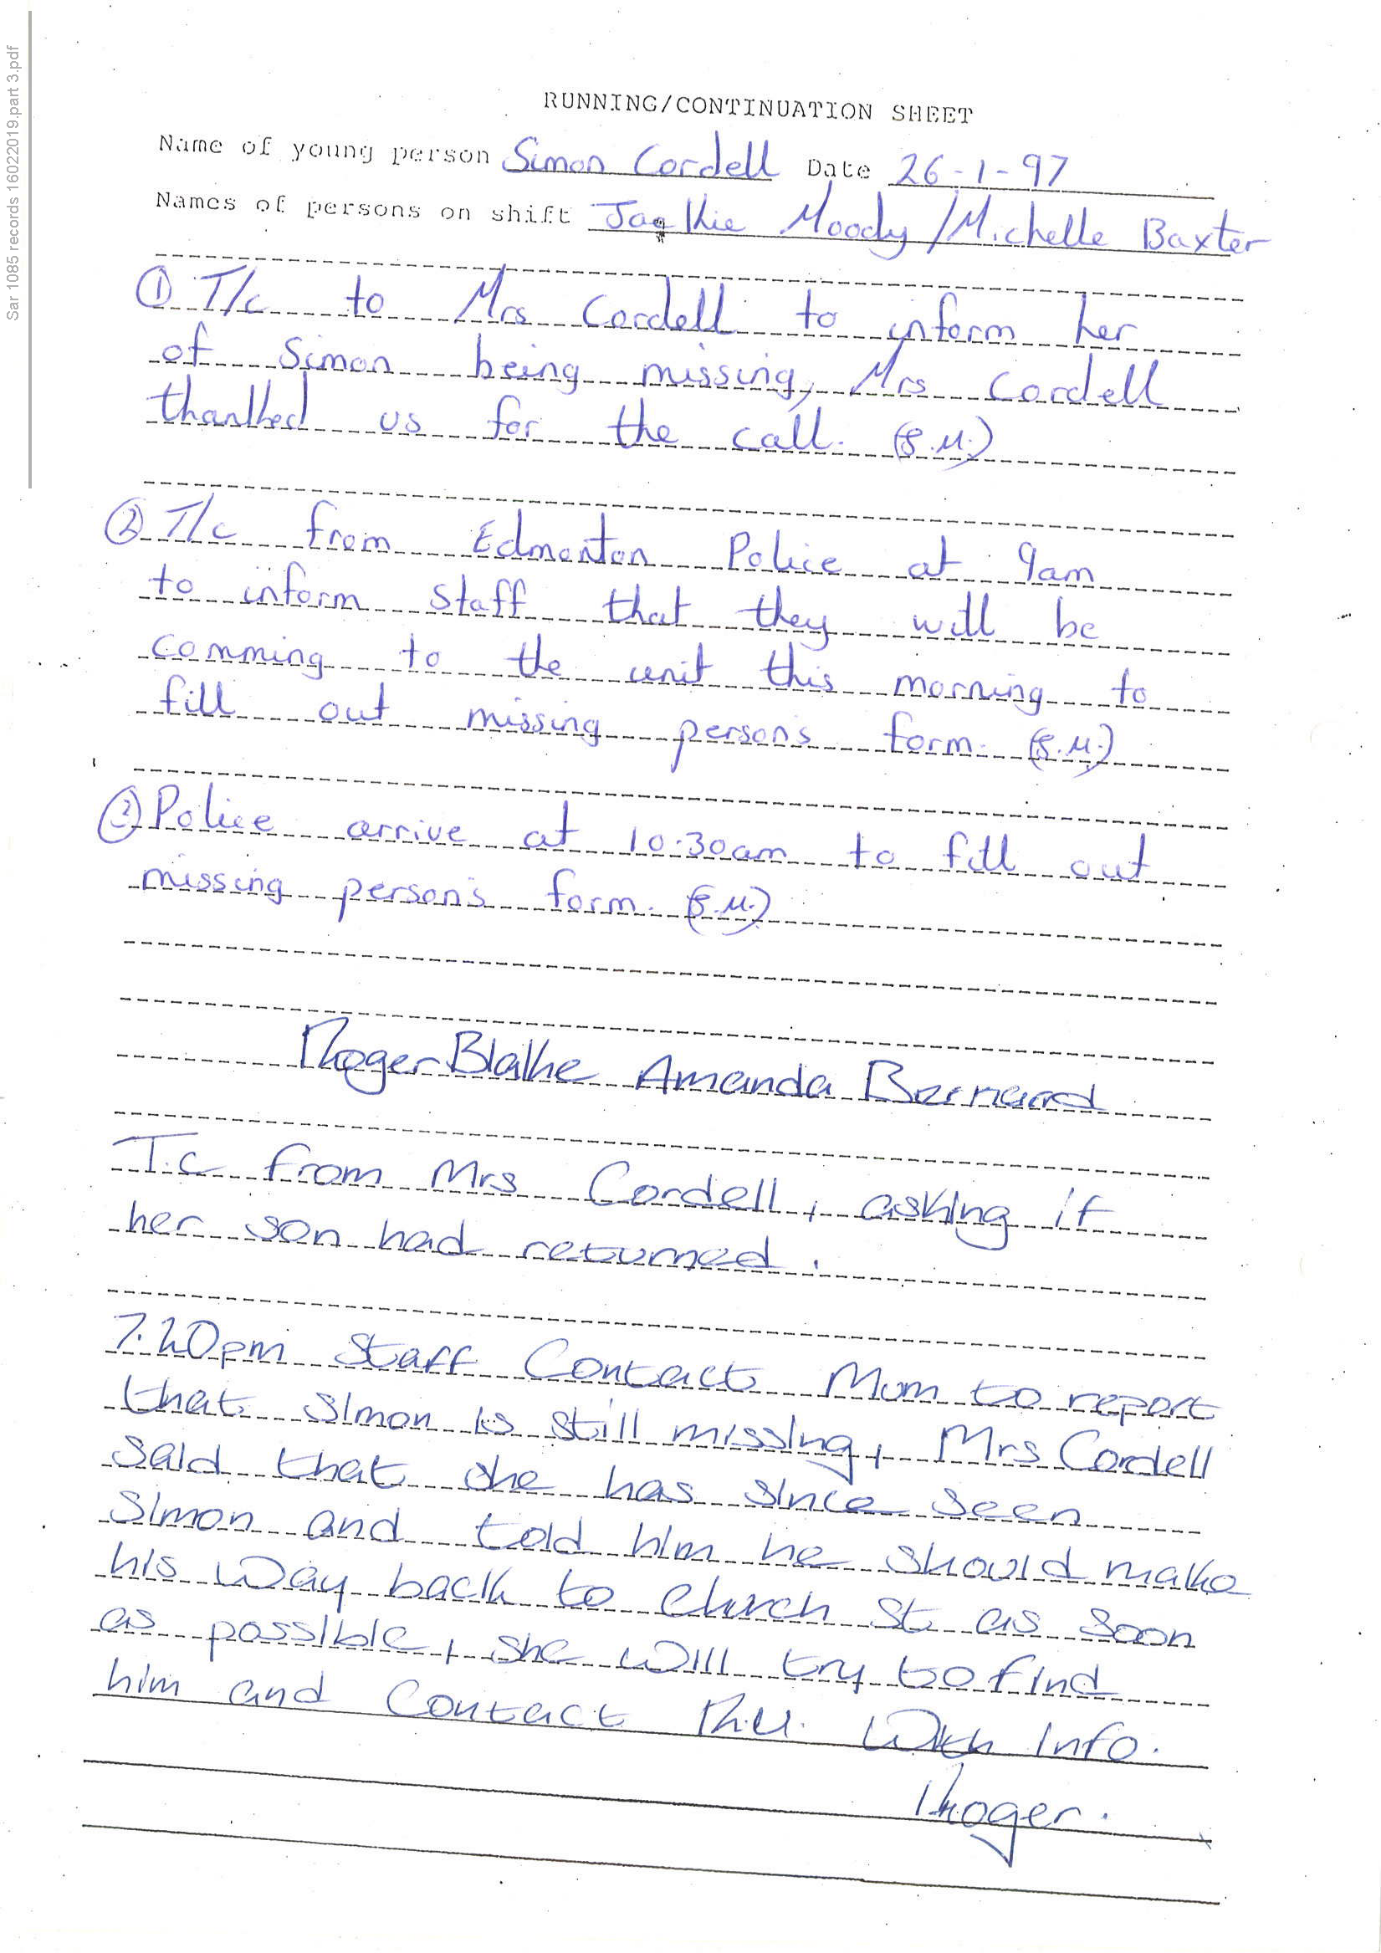 Sar 1085 records 16022019.part 3.pdf
RUNNING/CONTINUATION SHEET
Name of young person Simon Cordell Date 26-1-97
Names of persons on shift Jackie Moody/Michelle Baxter
① T/c to Mrs Cordell to inform her
of Simon being missing, Mrs Cordell
thanked us for the call. (J.M.)
② T/c from Edmonton Police at 9am
to inform staff that they will be
comming to the unit this morning to
fill out missing persons form. (J.M.)
③ Police arrive at 10.30am to fill out
missing person's form. (J.M.)
Roger Blake Amanda Bernard
T.c from Mrs Cordell, asking if
her son had returned.
7.20pm Staff Contact Mum to report
that Simon is still missing, Mrs Cordell
said that she has since seen
Simon and told him he should make
his way back to Church St as soon
as possible, she will try to find
him and Contact R.U. With info.
Roger.